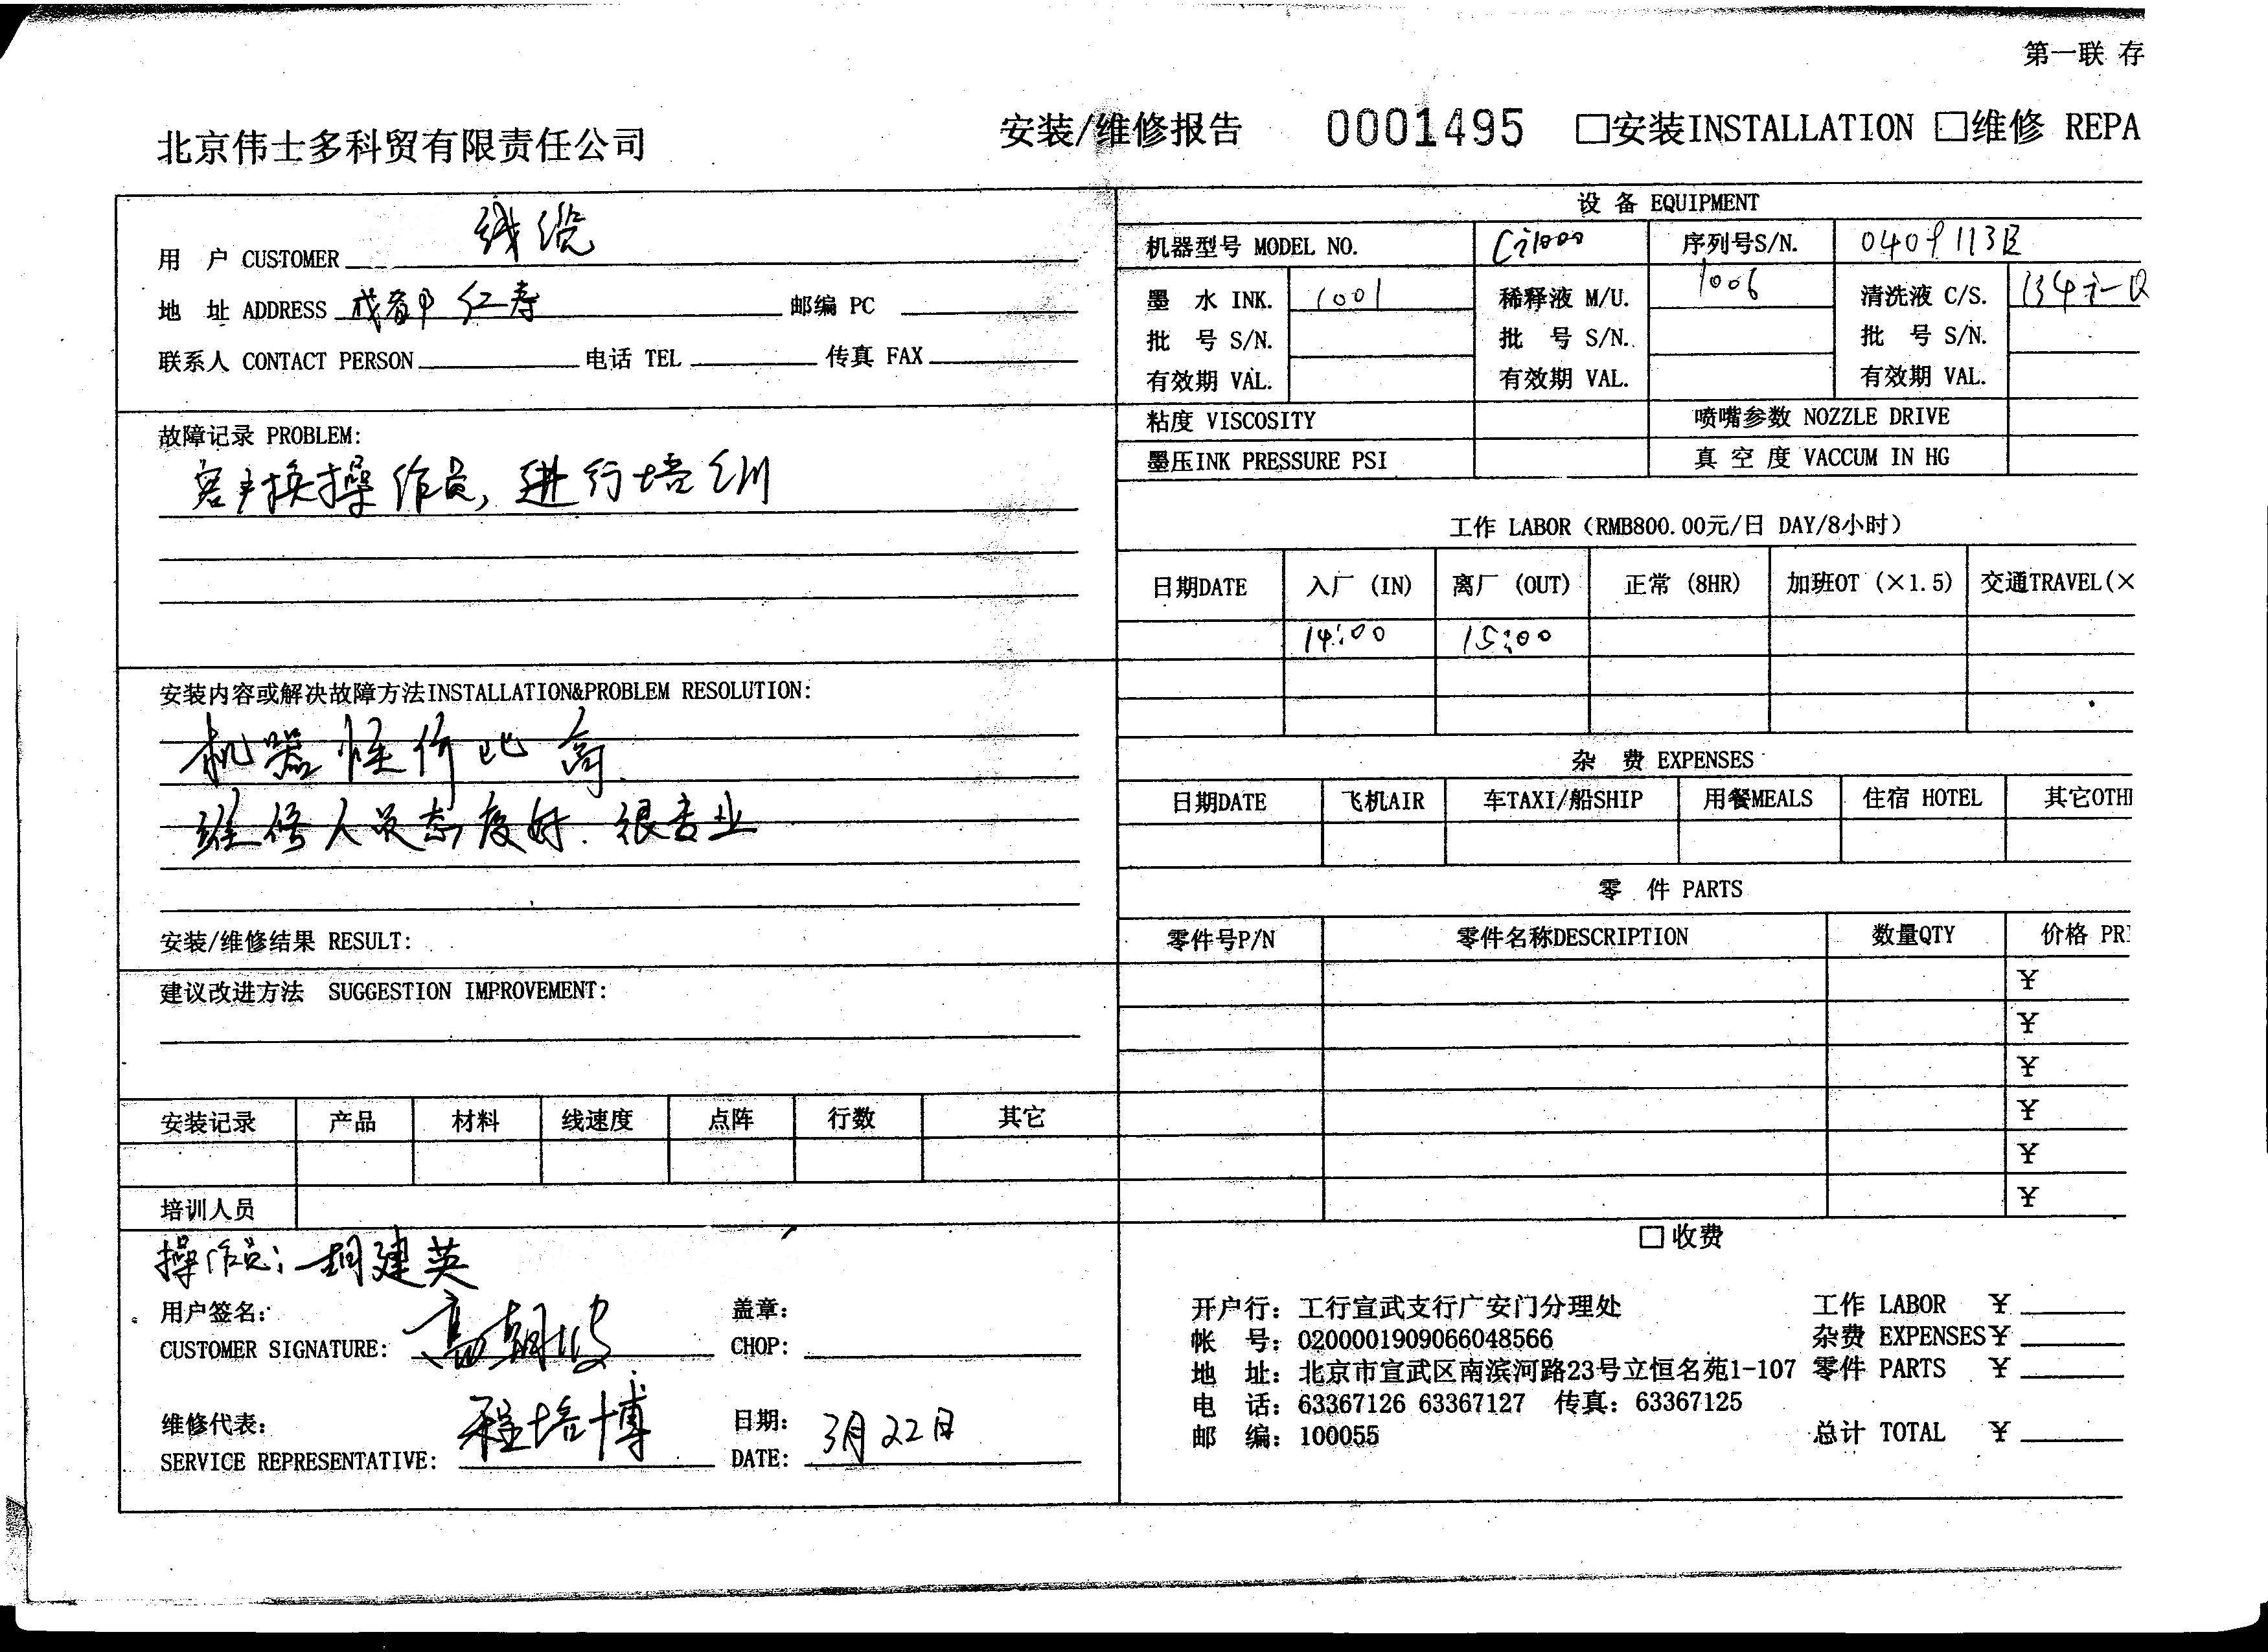 第一联 存
北京伟士多科贸有限责任公司
安装/维修报告 0001495 □安装INSTALLATION □维修 REPA
用 户 CUSTOMER 线缆
地 址 ADDRESS 成都 红寿 邮编 PC
联系人 CONTACT PERSON 电话 TEL 传真 FAX
故障记录 PROBLEM:
客户换操作员, 进行培训
安装内容或解决故障方法INSTALLATION&PROBLEM RESOLUTION:
机器性价比高.
维修人员态度好. 很专业
安装/维修结果 RESULT:
建议改进方法 SUGGESTION IMPROVEMENT:
安装记录 产品 材料 线速度 点阵 行数 其它
培训人员
操作员: 胡建英
用户签名: 盖章:
CUSTOMER SIGNATURE: 高朝波 CHOP:
维修代表: 程培博 日期: 3月22日
SERVICE REPRESENTATIVE: DATE:
设 备 EQUIPMENT
机器型号 MODEL NO. Ci1000 序列号S/N.
墨 水 INK. 1001 稀释液 M/U. 1006 清洗液 C/S.
批 号 S/N. 批 号 S/N. 批 号 S/N.
有效期 VAL. 有效期 VAL. 有效期 VAL.
粘度 VISCOSITY 喷嘴参数 NOZZLE DRIVE
墨压INK PRESSURE PSI 真 空 度 VACCUM IN HG
工作 LABOR（RMB800.00元/日 DAY/8小时）
日期DATE 入厂 (IN) 离厂 (OUT) 正常 (8HR) 加班OT (×1.5) 交通TRAVEL(×
14:00 15:00
杂 费 EXPENSES
日期DATE 飞机AIR 车TAXI/船SHIP 用餐MEALS 住宿 HOTEL 其它OTH
零 件 PARTS
零件号P/N 零件名称DESCRIPTION 数量QTY 价格 PRI
¥
¥
¥
¥
¥
¥
□收费
开户行: 工行宣武支行广安门分理处 工作 LABOR ¥
帐 号: 0200001909066048566 杂费 EXPENSES¥
地 址: 北京市宣武区南滨河路23号立恒名苑1-107 零件 PARTS ¥
电 话: 63367126 63367127 传真: 63367125
邮 编: 100055 总计 TOTAL ¥